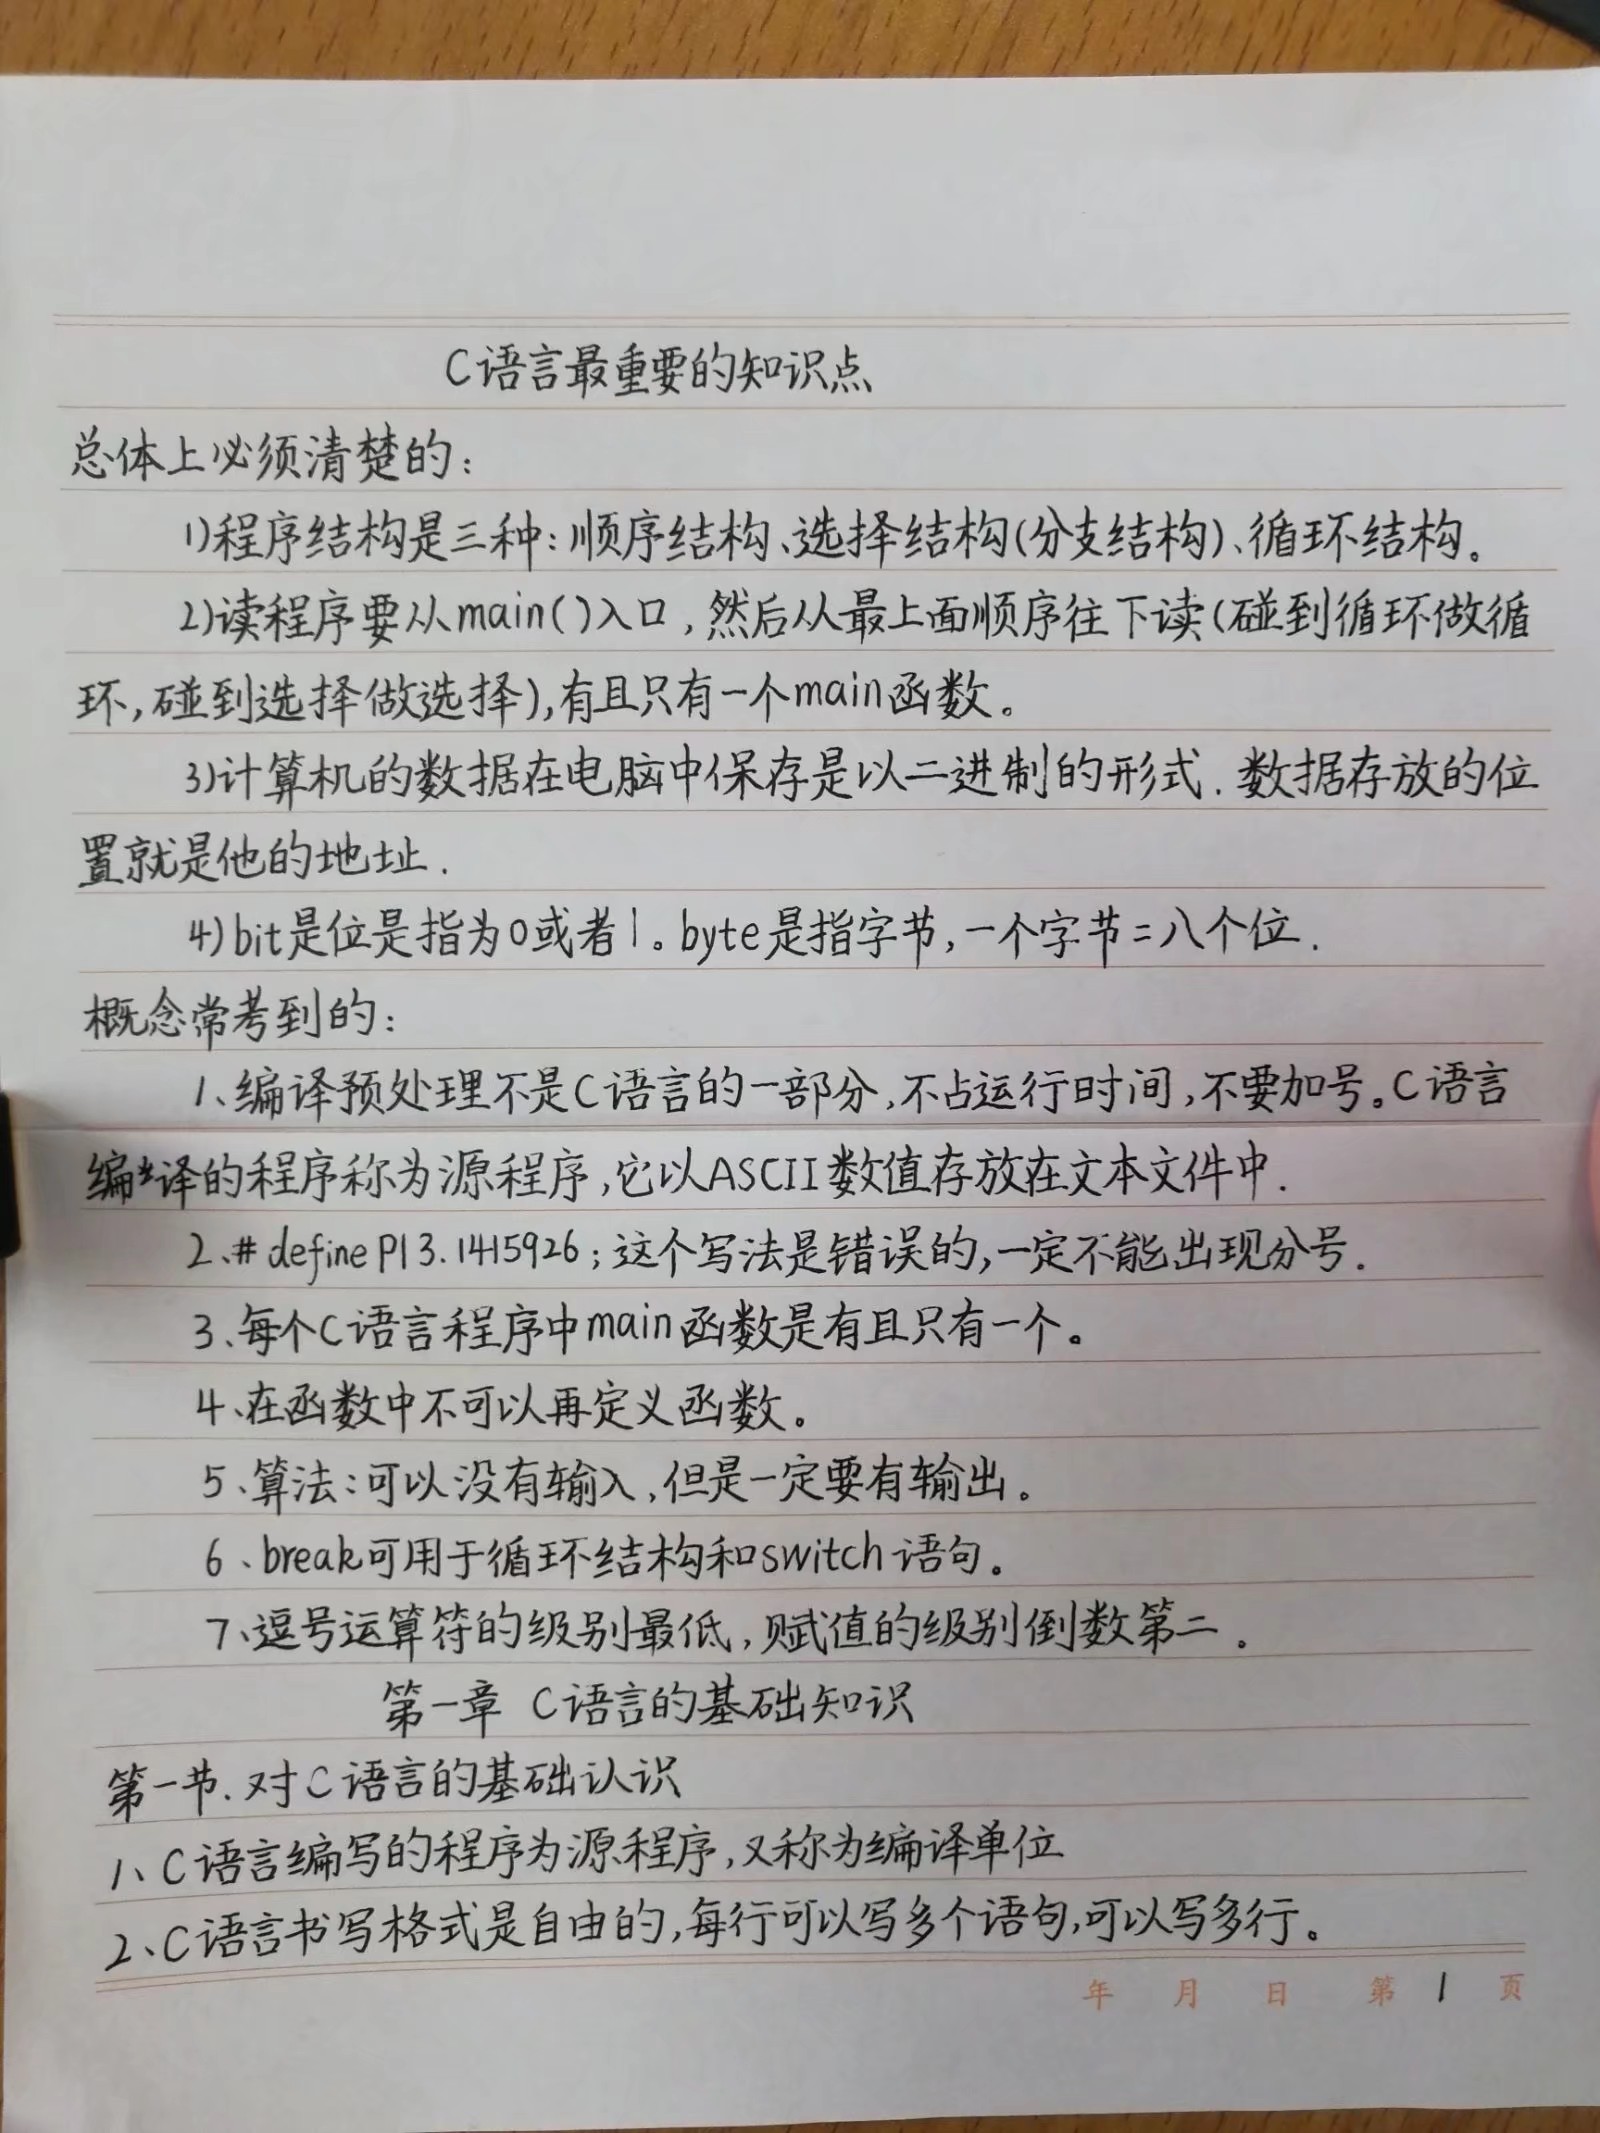 C语言最重要的知识点
总体上必须清楚的:
1)程序结构是三种:顺序结构、选择结构(分支结构)、循环结构。
2)读程序要从main()入口,然后从最上面顺序往下读(碰到循环做循
环,碰到选择做选择),有且只有一个main函数。
3)计算机的数据在电脑中保存是以二进制的形式.数据存放的位
置就是他的地址.
4)bit是位是指为0或者1。byte是指字节,一个字节=八个位.
概念常考到的:
1、编译预处理不是C语言的一部分,不占运行时间,不要加号。C语言
编译的程序称为源程序,它以ASCII数值存放在文本文件中.
2、#define PI 3.1415926;这个写法是错误的,一定不能出现分号.
3、每个C语言程序中main函数是有且只有一个。
4、在函数中不可以再定义函数。
5、算法:可以没有输入,但是一定要有输出。
6、break可用于循环结构和switch语句。
7、逗号运算符的级别最低,赋值的级别倒数第二。
第一章 C语言的基础知识
第一节.对C语言的基础认识
1、C语言编写的程序为源程序,又称为编译单位
2、C语言书写格式是自由的,每行可以写多个语句,可以写多行。
年 月 日 第 1 页